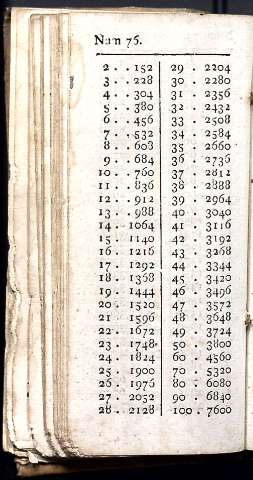 Nan 76.
2 . . 152 29 . 2204
3 . . 228 30 . 2280
4 . . 304 31 . 2356
5 . . 380 32 . 2432
6 . . 456 33 . 2508
7 . . 532 34 . 2584
8 . . 608 35 . 2660
9 . . 684 36 . 2736
10 . . 760 37 . 2812
11 . . 836 38 . 2888
12 . . 912 39 . 2964
13 . . 988 40 . 3040
14 . 1064 41 . 3116
15 . 1140 42 . 3192
16 . 1216 43 . 3268
17 . 1292 44 . 3344
18 . 1368 45 . 3420
19 . 1444 46 . 3496
20 . 1520 47 . 3572
21 . 1596 48 . 3648
22 . 1672 49 . 3724
23 . 1748 50 . 3800
24 . 1824 60 . 4560
25 . 1900 70 . 5320
26 . 1976 80 . 6080
27 . 2052 90 . 6840
28 . 2128 100 . 7600